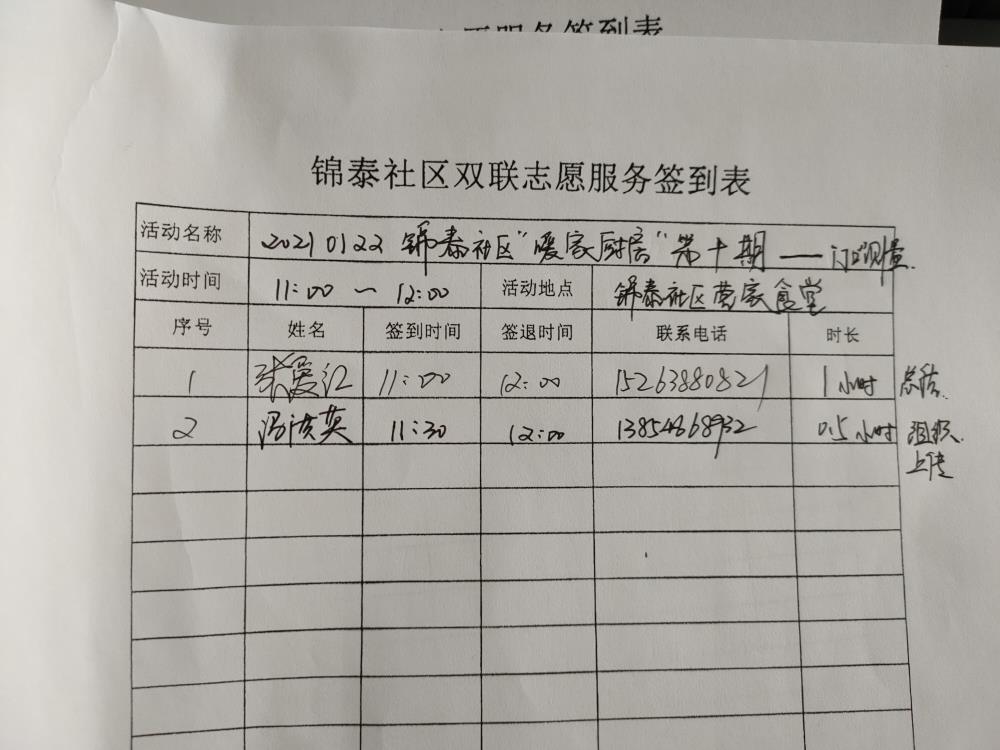 服务签到表
锦泰社区双联志愿服务签到表
活动名称 20210122 锦泰社区“暖家厨房”第十期——
活动时间 11:00 ~ 12:00 活动地点 锦泰社区 食堂
序号 姓名 签到时间 签退时间 联系电话 时长
1 张爱红 11:00 12:00 15263880821 1小时 总结.
2 英 11:30 12:00 13854368932 0.5小时 组织.
上传